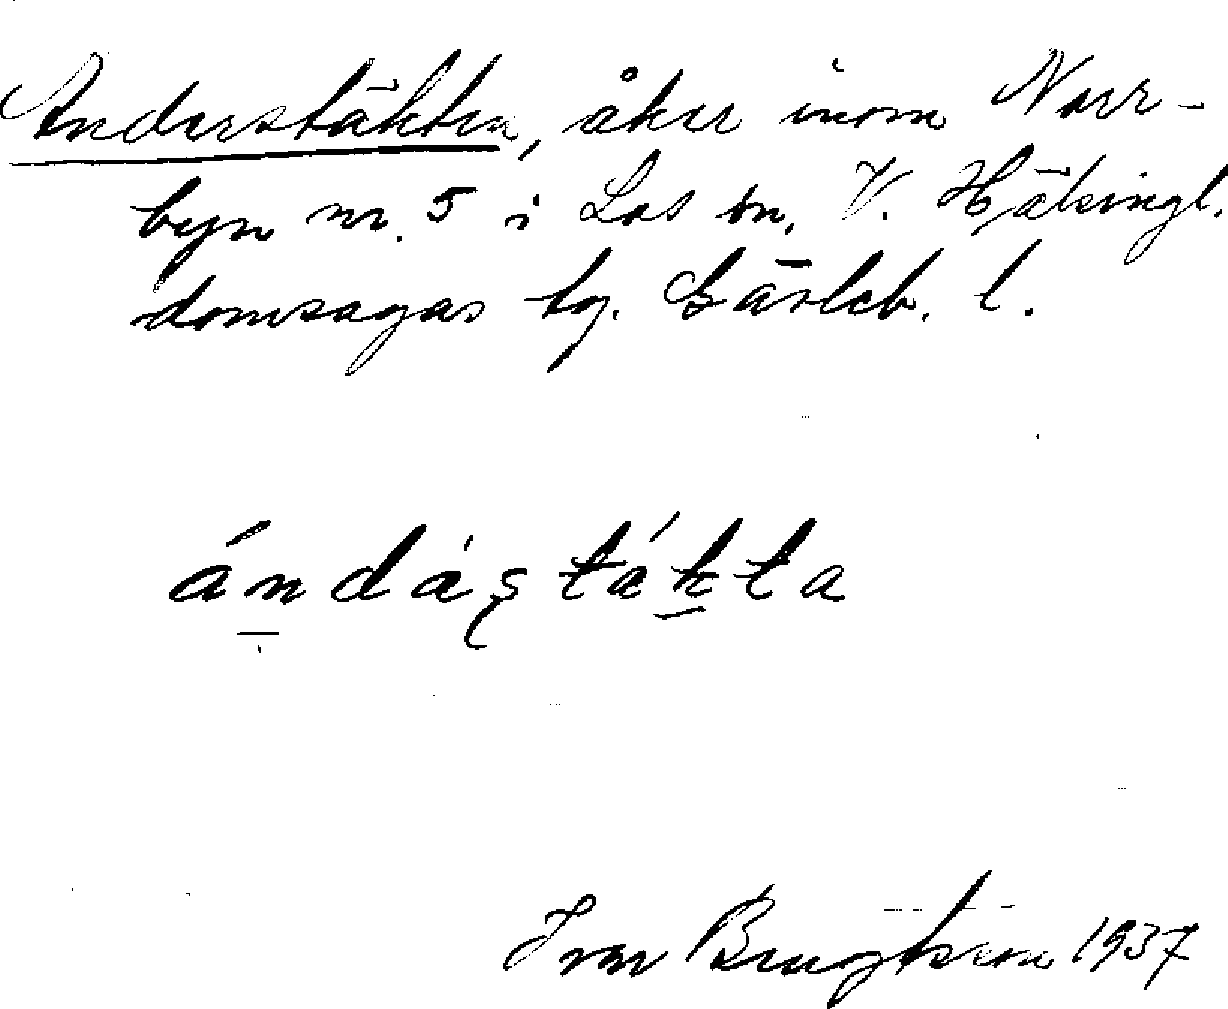 Anderstäkten, åker inom Norr-
byn nr. 5 i Los sn, V. Hälsingl.
domsagas tg. Gävleb. l.
ándáştákta
Ivar 1937